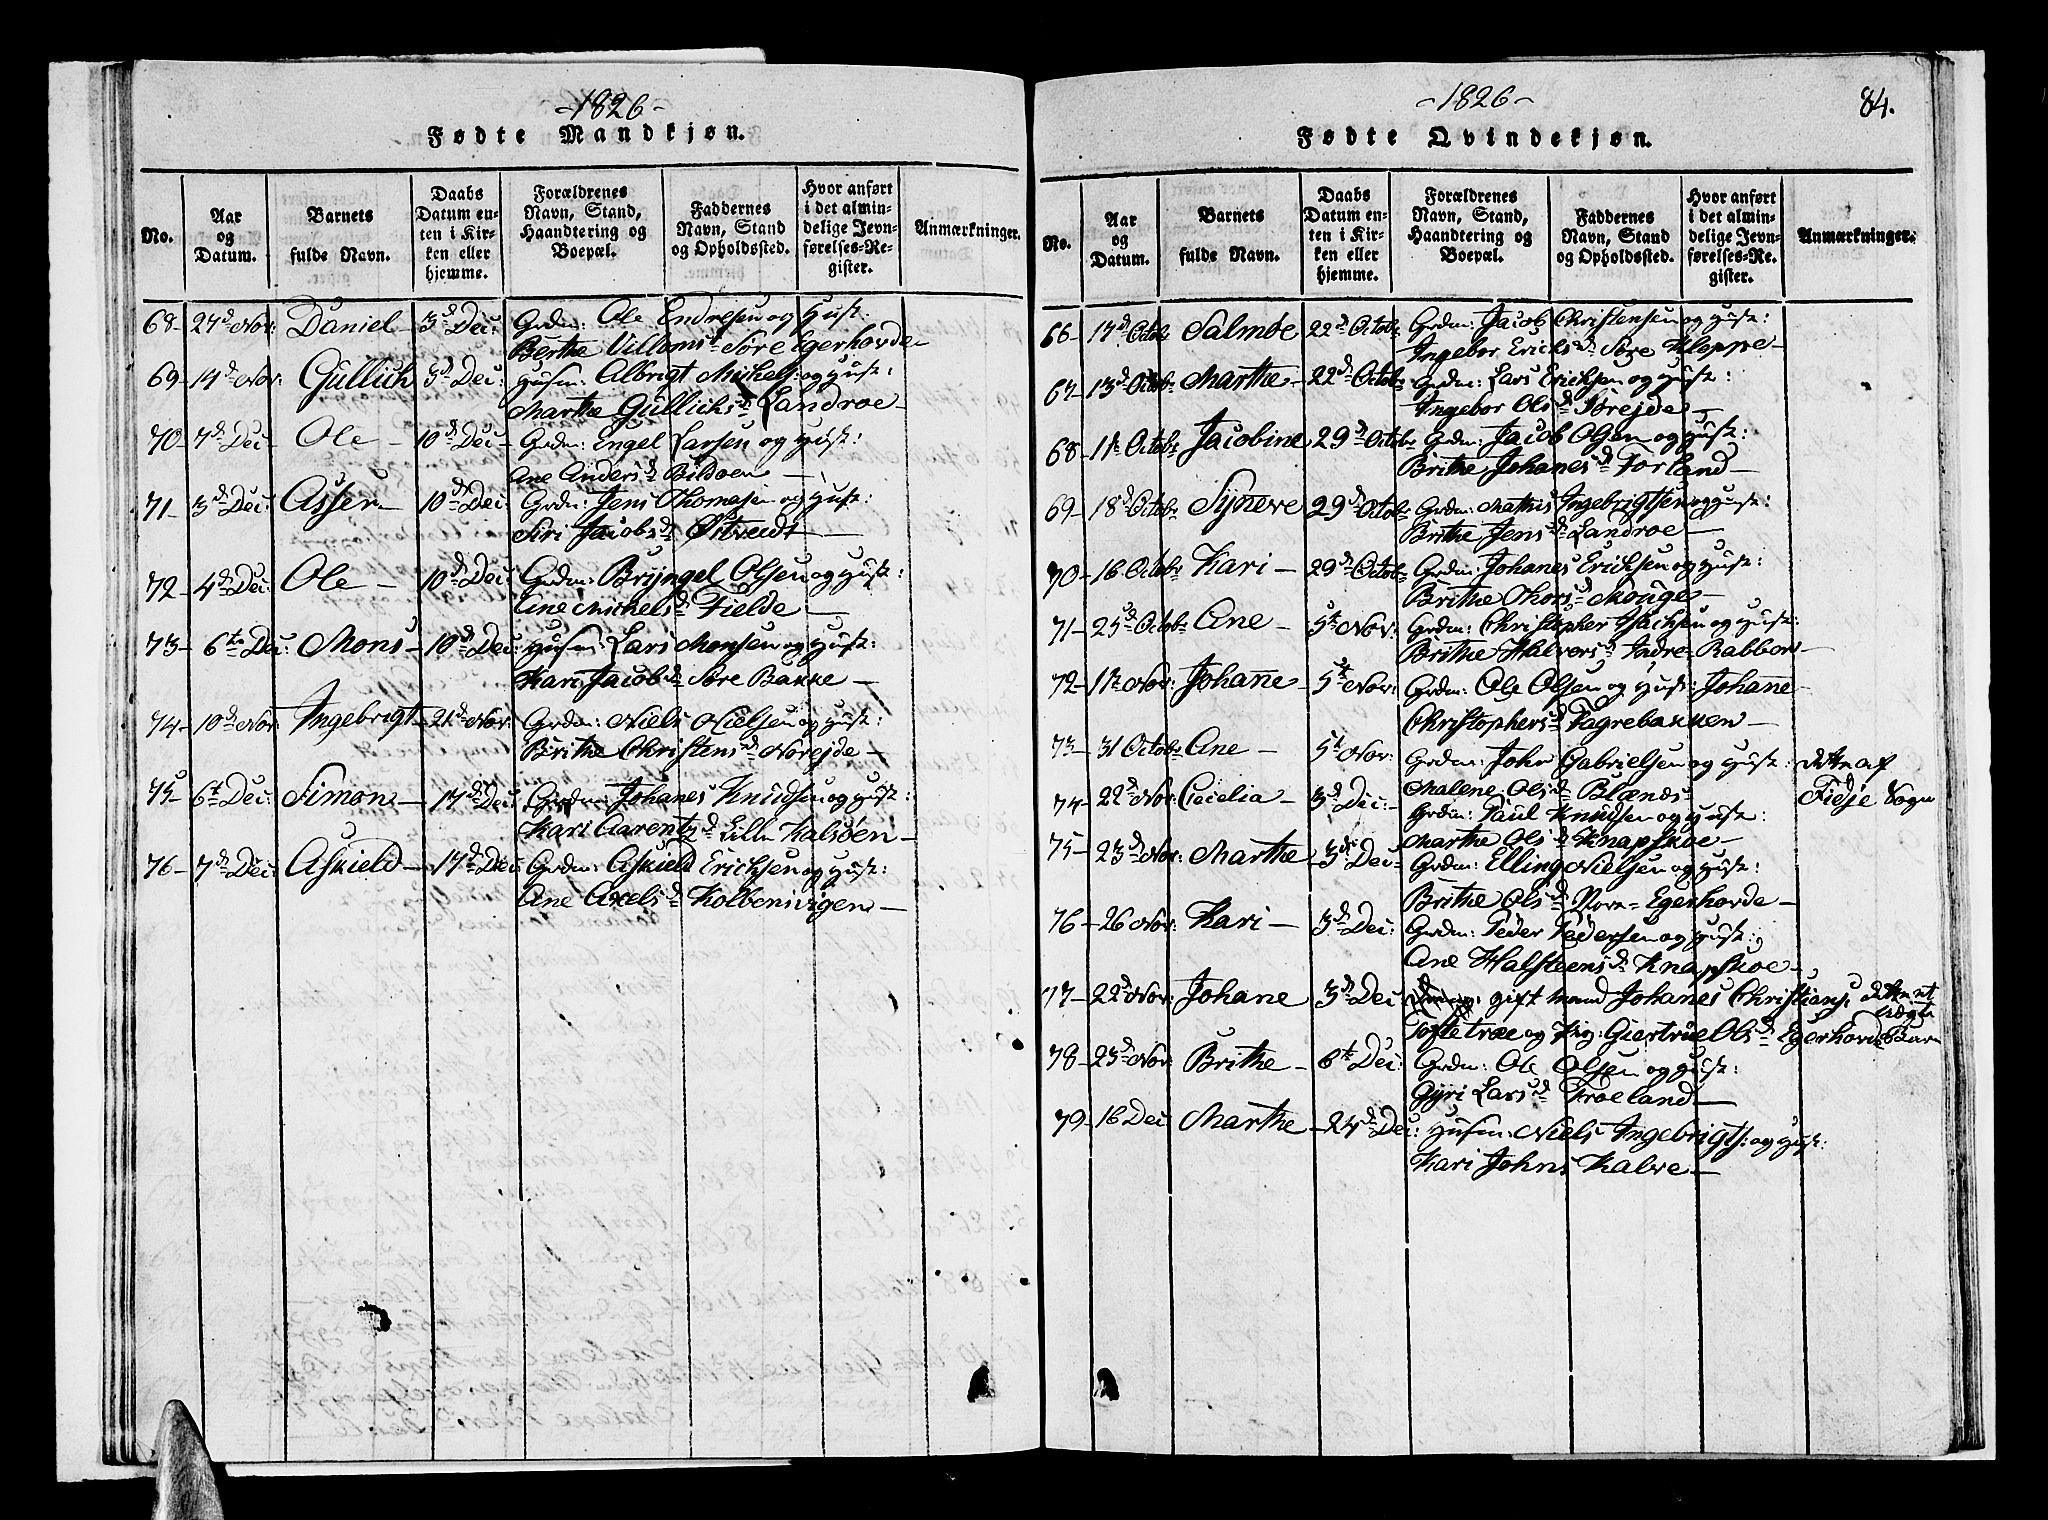 -1826-
Fødte Mandkjøn.
No.
Aar og Datum.
Barnets fulde Navn.
Daabs Datum enten i Kirken eller hjemme.
Forældrenes Navn, Stand, Haandtering og Boepæl.
Faddernes Navn, Stand og Opholdssted.
Hvor anført i det almindelige Jevnførelses-Register.
Anmærkninger.
68- 27d Nov: Daniel 3d Dec: Grdm: Ole Endresen og Hust:
Berthe Villoms Søre Egerhovde
69- 14d Nov: Gullich 3d Dec: Husm: Albrigt Michels: og Hust:
Marthe Gullichsd Landroe-
70- 7d Dec Ole - 10d Dec- Grdm: Engel Larsen og Hust:
Ane Andersd Bildoen -
71- 3d Dec: Asser- 10d Dec: Grdm: Jens Thomasen og Hust:
Siri Jacobsd Østvedt -
72- 4d Dec: Ole - 10d Dec: Grdm: Bryngel Olsen og Hust:
Ane Michelsd Fielde -
73- 6te Dec: Mons - 10d Dec: Husm: Lars Monsen og Hust:
Kari Jacobsd Søre Bakke -
74- 10d Nov: Ingebrigt 21d Nov: Grdm: Niels Nielsen og Hust:
Brithe Christensd Norejde -
75- 6t Dec: Simon - 17d Dec: Grdm: Johanes Knudsen og Hust:
Kari Aarentzd Lille Kalsøen -
76- 7d Dec: Askield - 17d Dec: Grdm: Askield Erichsen og Hust:
Ane Axelsd Kolbensvigen -
-1826-
84.
Fødte Qvindekjøn.
No.
Aar og Datum.
Barnets fulde Navn.
Daabs Datum enten i Kirken eller hjemme.
Forældrenes Navn, Stand, Haandtering og Boepæl.
Faddernes Navn, Stand og Opholdssted.
Hvor anført i det almindelige Jevnførelses-Register.
Anmærkninger.
66- 17d Octob: Salmøe 22d Octob: Grdm: Jacob Christensen og Hust:
Ingebor Ericksd Søre Kloppe-
67- 13d Octob: Marthe - 22d Octob: Grdm: Lars Ericksen og Hust:
Ingebor Olsd Sørejde -
68- 11t Octob: Jacobine 29d Octob: Grdm: Jacob Olsen og Hust:
Brithe Johanesd Forland -
69- 18d Octob: Syneve 29d Octob: Grdm: Mathis Ingebrigtsen og Hust:
Brithe Jensd Landroe -
70- 16 Octob: Kari - 29d Octob: Grdm: Johanes Ericksen og Hust:
Brithe Thorsd Mouge -
71- 25d Octob: Ane - 5t Nov: Grdm: Christopher Isachsen og Hust:
Brithe Halvorsd Indre Rabben-
72- 1t Nov: Johane - 5t Nov: Grdm: Ole Olsen og Hust: Johane
Christophersd Fagrebakken -
73- 31 Octob: Ane - 5t Nov: Grdm: John Gabrielsen og Hust: dette af
Malene Olsd Blænes- Fidje Sogn
74- 22d Nov: Cecelia - 3d Dec: Grdm: Paul Knudsen og Hust:
Marthe Olsd Knapskoe -
75- 23d Nov: Marthe - 3d Dec- Grdm: Elling Nielsen og Hust:
Brithe Olsd Nore- Egerhovde -
76- 26 Nov: Kari - 3d Dec: Grdm: Peder Pedersen og Hust:
Ane Halsteensd Knapskoe -
77- 22d Nov: Johane 3d Dec gift mand Johanes Christians: dette et uægte
Toftetræe og Pig: Giertrue Olsd Egerhovde Barn
78- 23d Nov: Brithe - 6t Dec: Grdm: Ole Olsen og Hust:
Gyri Larsd Froeland -
79- 16 Dec Marthe - 24d Dec: Husm: Niels Ingebrigts: og Hust:
Kari Johns Kalve -